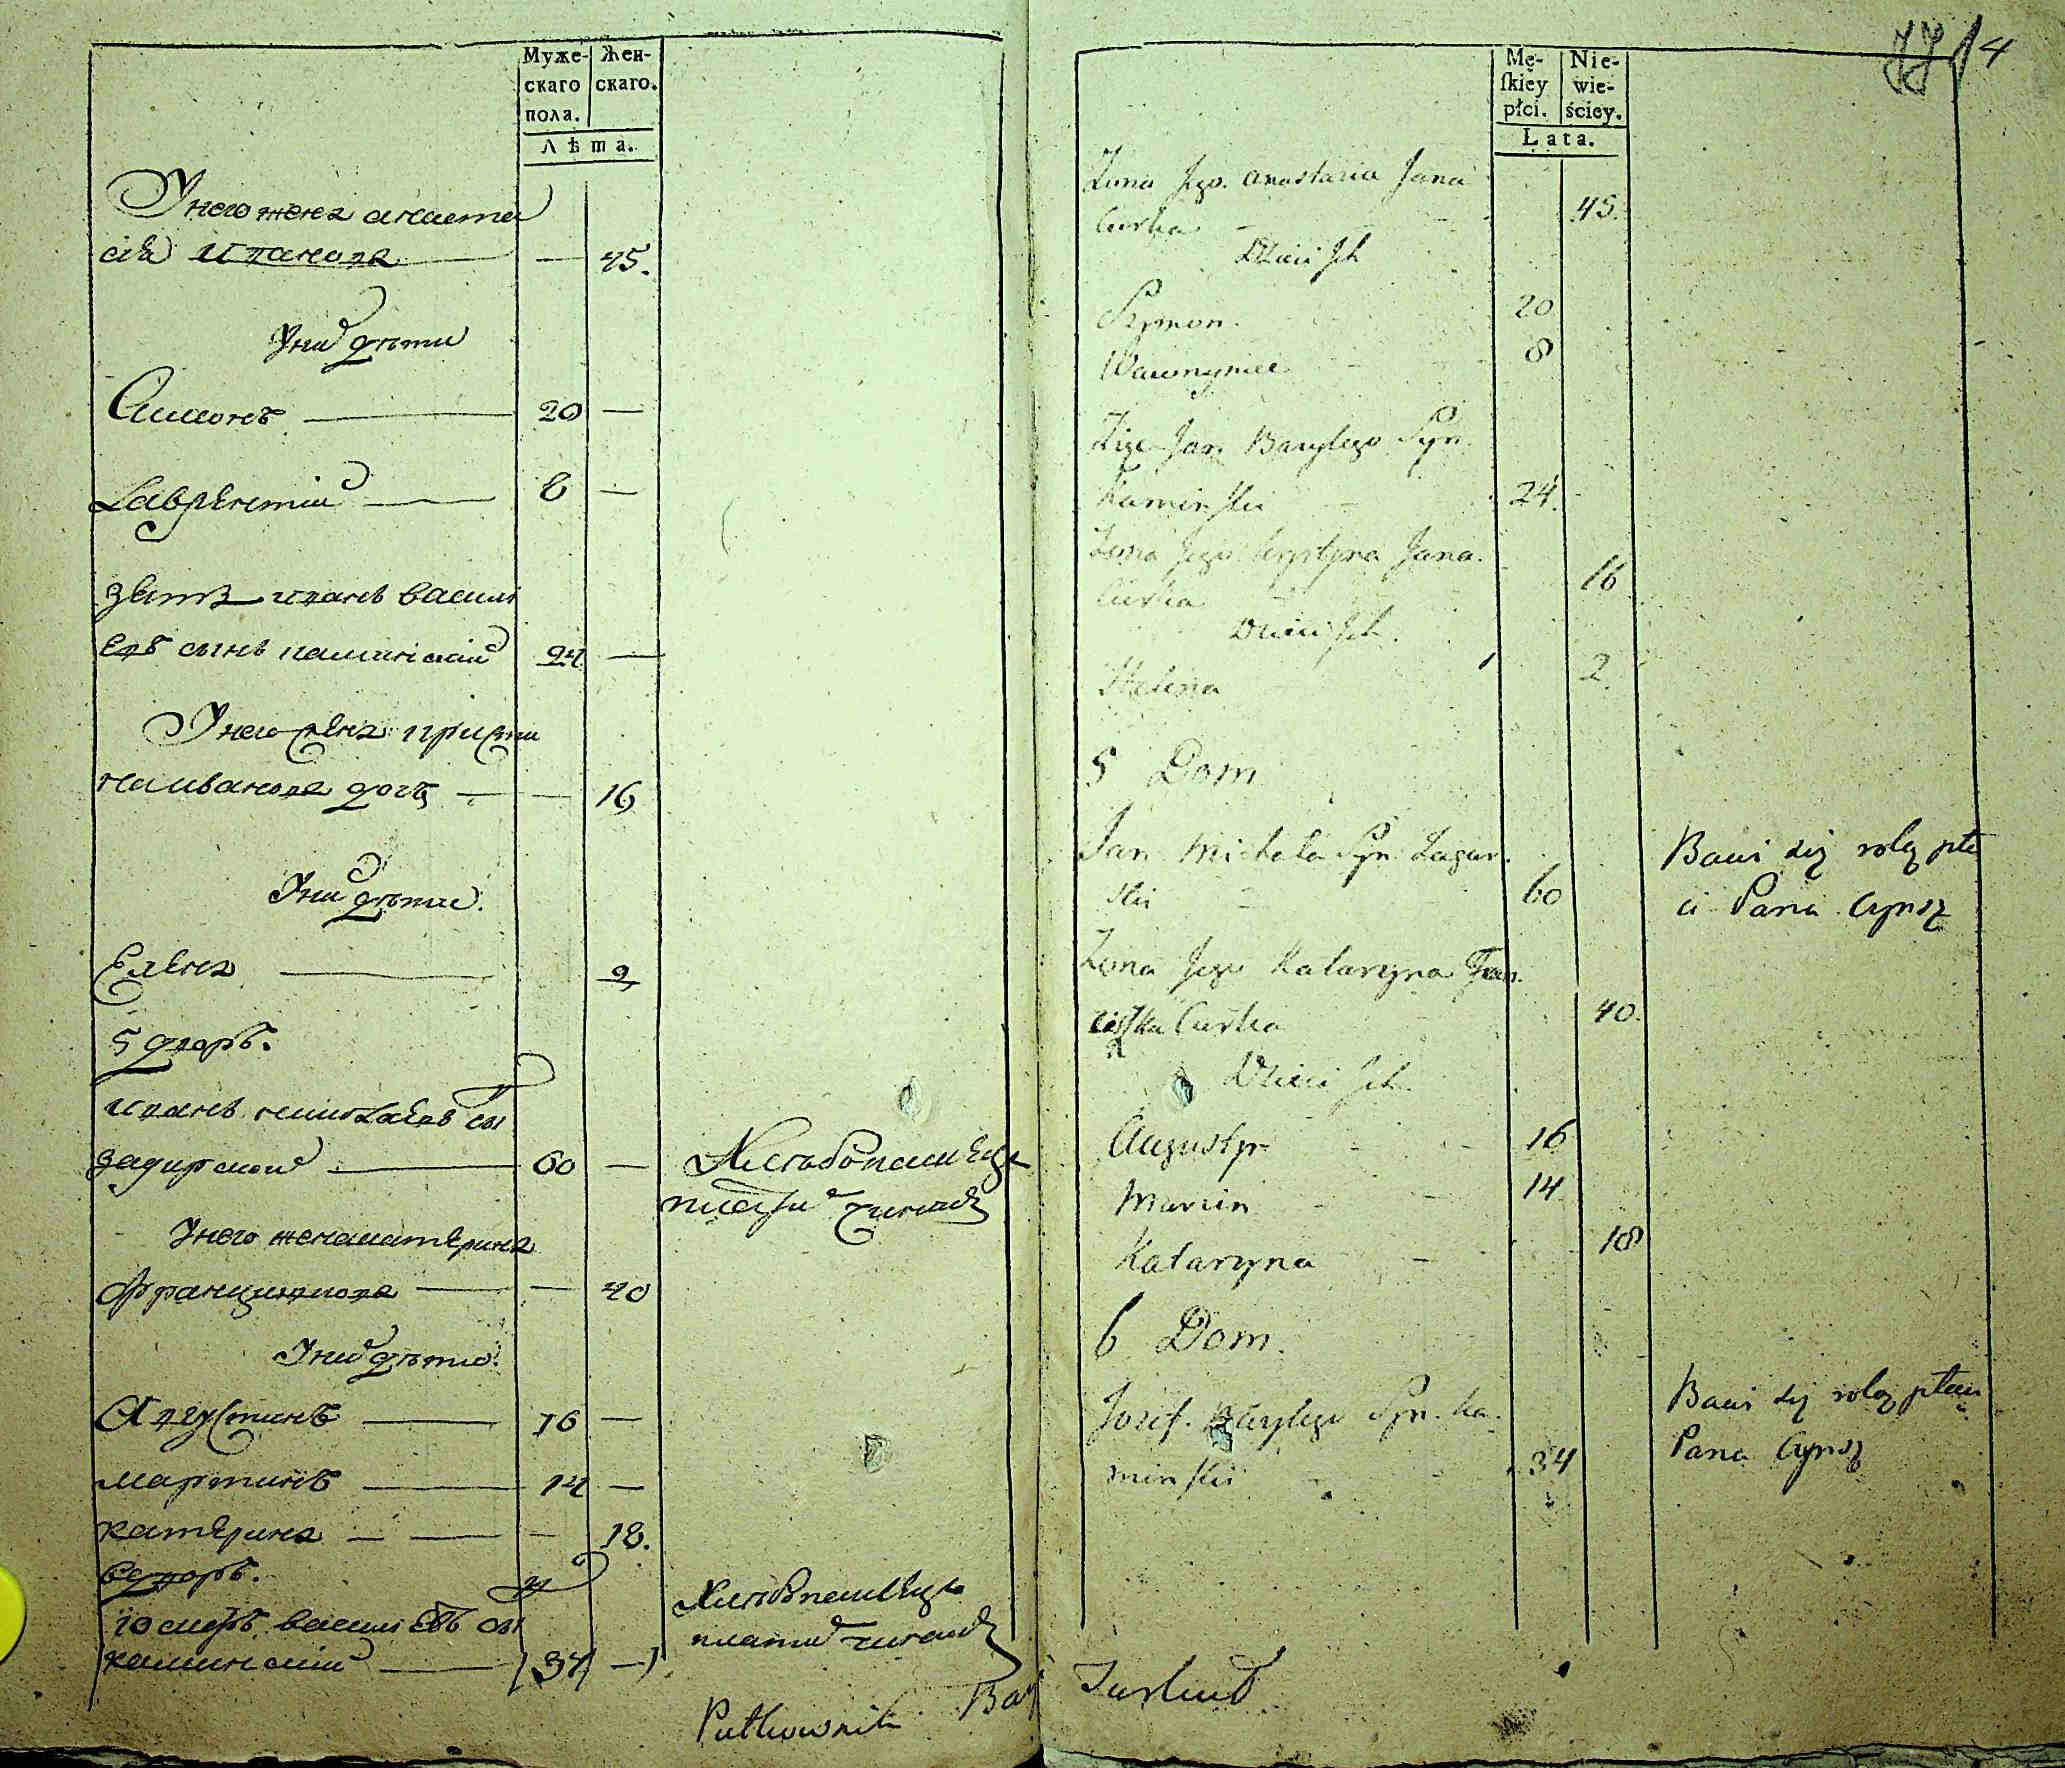 Муже-
скаго
пола.
Жен-
скаго.
Лѣта.
У него жена анаста
сія иванова — 45.
У них дѣти
Симонъ — 20 —
Лаврентій — 8 —
зять иванъ василь
евъ сынъ каминский 24 —
У него жена кристи
на иванова дочь — 16
У них дѣти.
Елена — 2
5 дворъ.
иванъ михайлов сы
— 60 — Хлѣбопашецъ
платит чиншъ
У него жена катерина
францишкова — 40
У них дѣти.
Августинъ — 16 —
мартинъ — 14 —
катерина — 18.
6 дворъ.
іосифъ васильевъ сын Хлѣбопашецъ
каминский — 34 — платит чиншъ
Pułkownik
Mę-
ſkiey
płci.
Nie-
wie-
ściey.
Lata.
4
Żona Jego Anastazia Jana
Curka 45.
Dzieci Ich
Szymon 20
Wawrzyniec 8
Zięć Jan Bazylego Syn
Kaminſki 24.
Żona Jego Krystyna Jana
Curka 16
Dzieci Ich.
Helena 2.
5 Dom
Jan Michała Syn
ski 60
Bawi się rolą pła
ci Pana Czynsz
Żona Jego Katarzyna Fran
ciſzka Curka 40.
Dzieci Ich
Augustyn 16
Marcin 14
Katarzyna 18
6 Dom.
Jozef Bazylego Syn Ka
minſki 34
Bawi się rolą płaci
Pana Czynsz